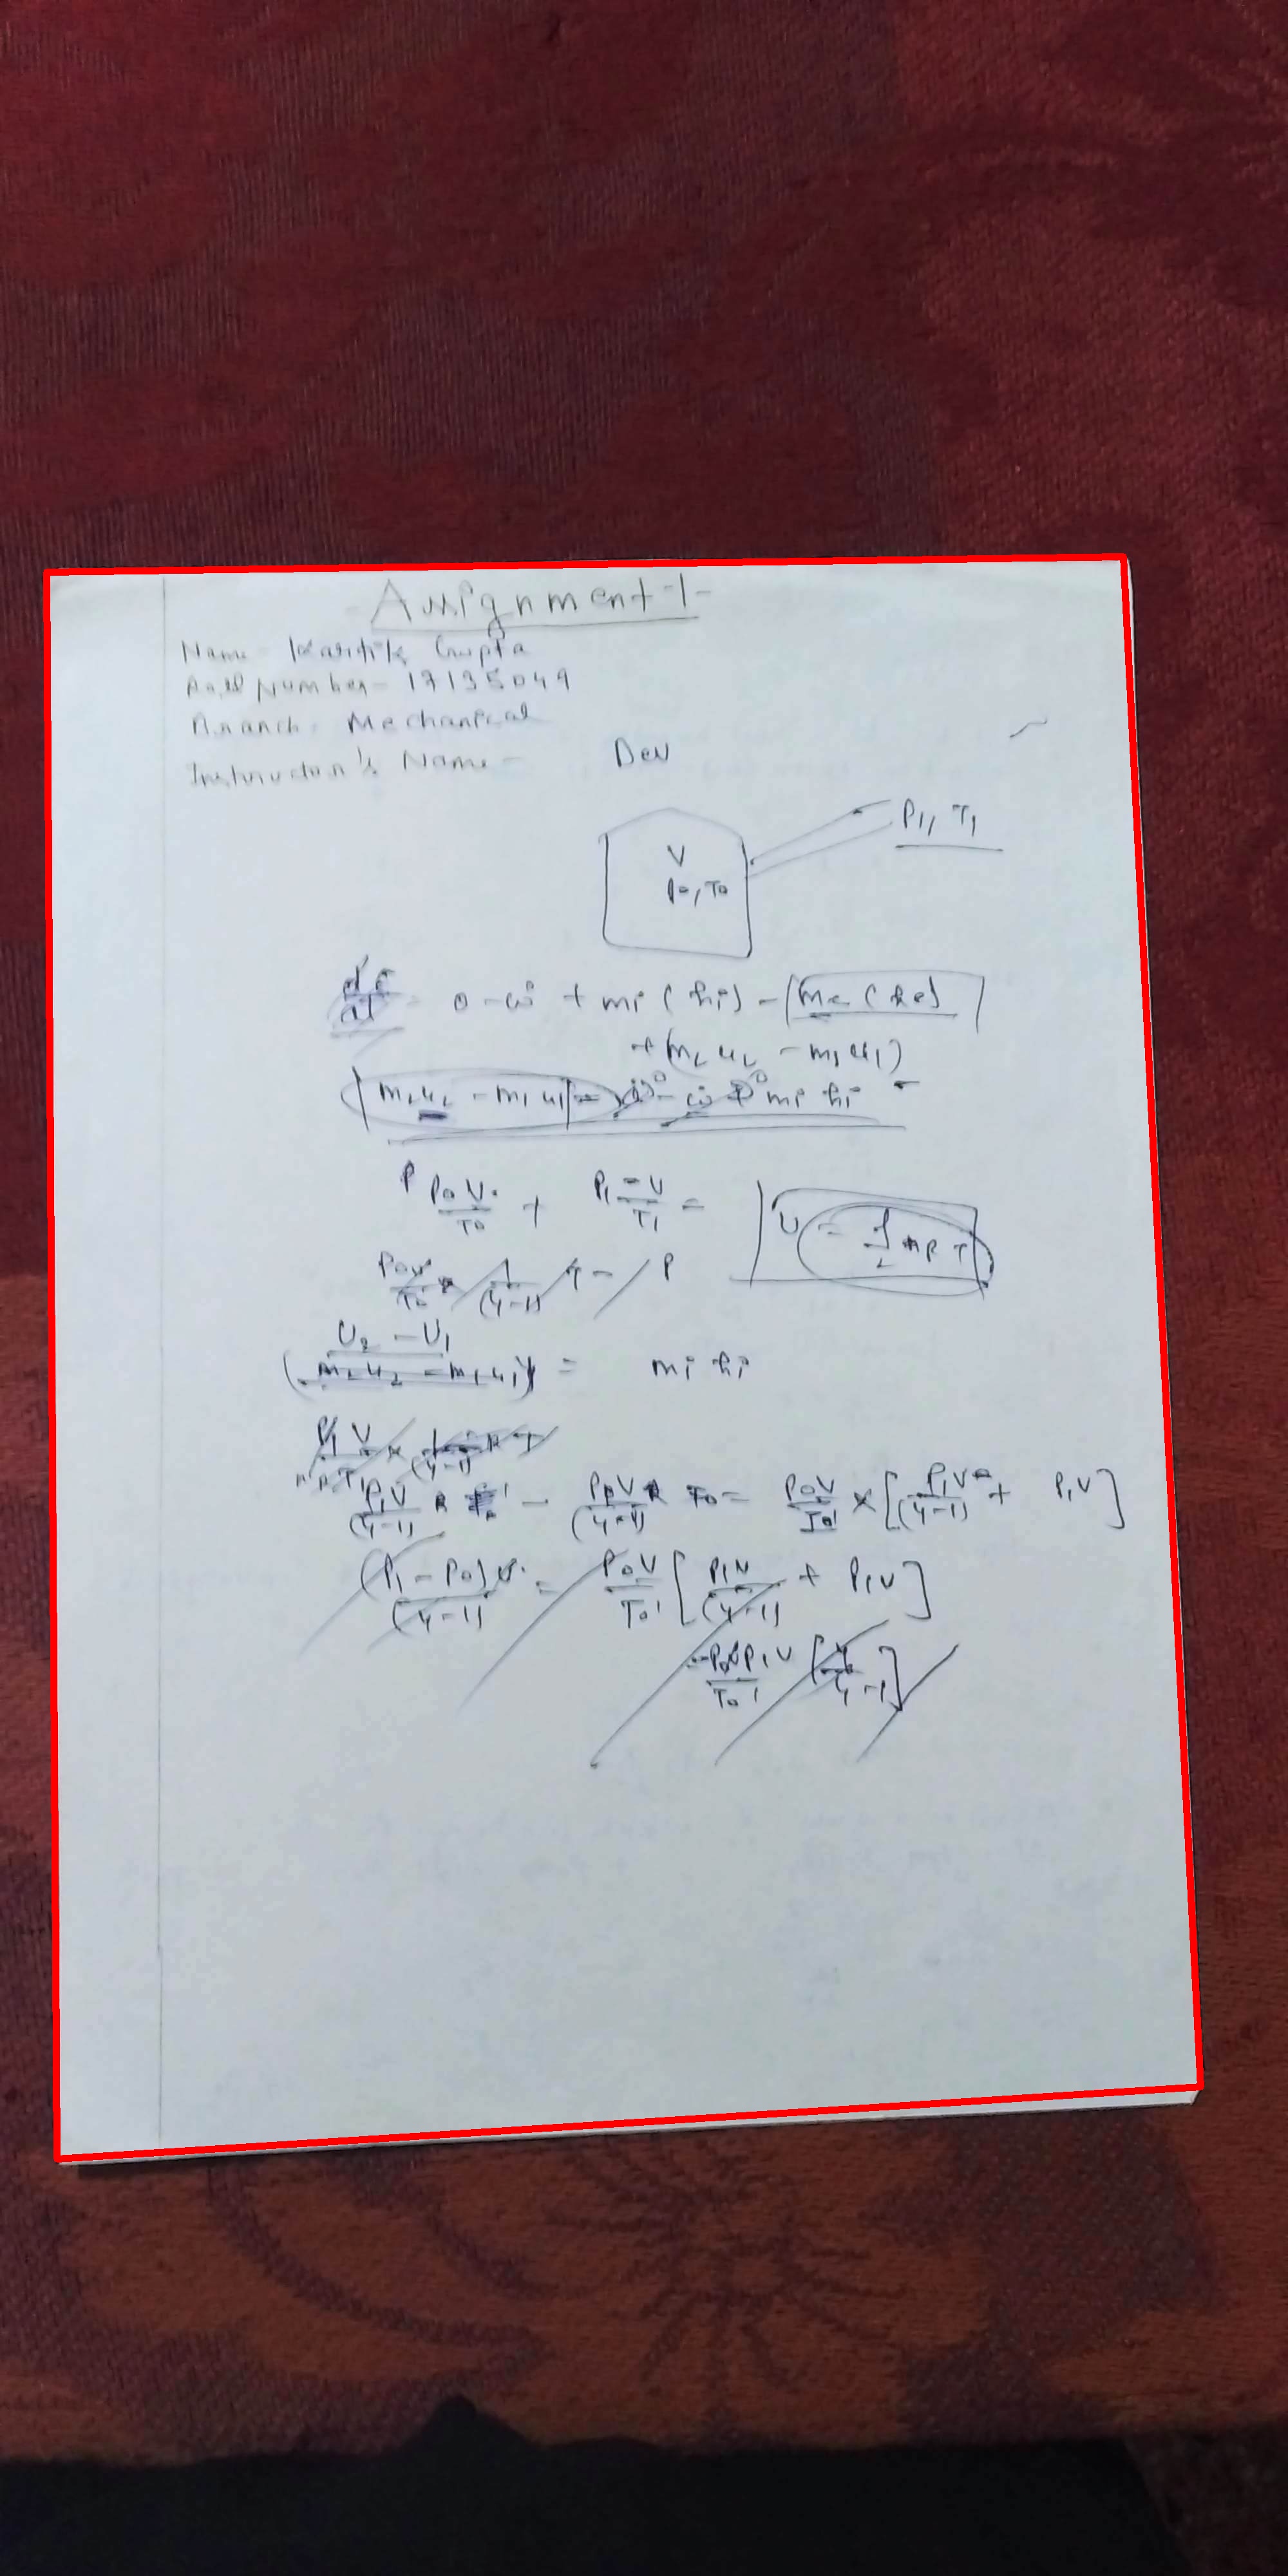 Assignment-1-
Name - Kartik Gupta
Roll Number - 17135049
Branch - Mechanical
Instructor's Name - Dev
P1, T1
V
P0, T0
dE/dt = 0 - ω + mi (hi) - me (he)
+ (m2 u2 - m1 u1)
m2u2 - m1 u1 = mi hi
P0 V / T0 + P1 V / T1 =
U = f/2 n R T
P0V / T0 1/(γ-1) P
U2 - U1
(m2 u2 - m1 u1) = mi hi
P1 V
P1V/(γ-1) - P0V/(γ-1) T0 = P0V/T0 × [P1V/(γ-1) + P1V]
(P1 - P0) V/(γ-1) = P0V/T0 [P1V/(γ-1) + P1V]
P0 P1 V/T0 [γ/γ-1]